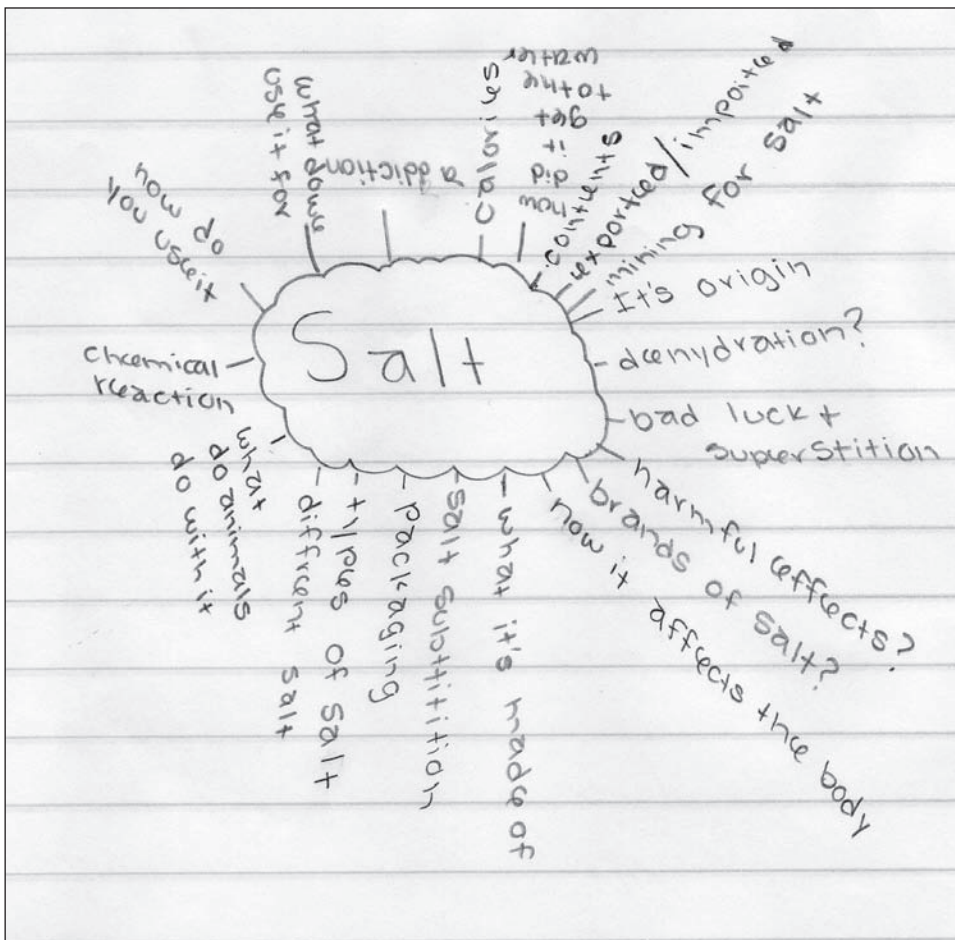 Salt
what do we
use it for
addiction
calories
how
did
it
get
to the
water
contents
exported/imported
mining for salt
It's origin
dehydration?
bad luck +
superstition
harmful effects?
brands of salt?
how it affects the body
what it's made of
salt subttitition
packaging
types of salt
diffrent salt
what
do animals
do with it
chemical
reaction
how do
you use it